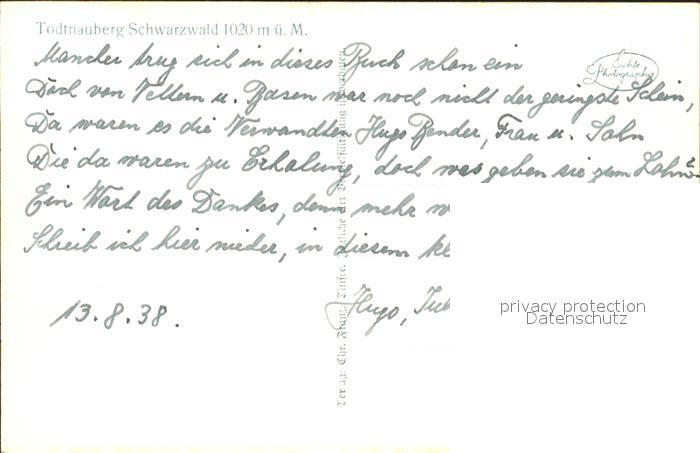 Todtnauberg Schwarzwald 1020 m ü. M.
Mancher trug sich in dieses Buch schon ein
Echte Photographie
Doch von Vettern u. Basen war noch nicht der geringste Schein,
Da waren es die Verwandten Hugo Bender, Frau u. Sohn
Die da waren zu Erholung, doch was geben sie zum Lohn?
Ein Wort des Dankes, denn mehr w
Schreib ich hier nieder, in diesem kl
13.8.38.
Hugo,
privacy protection
Datenschutz
Verlag: Chr. Franz